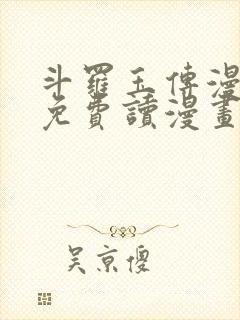 斗羅玉傳漫
免費讀漫畫
吴京傻